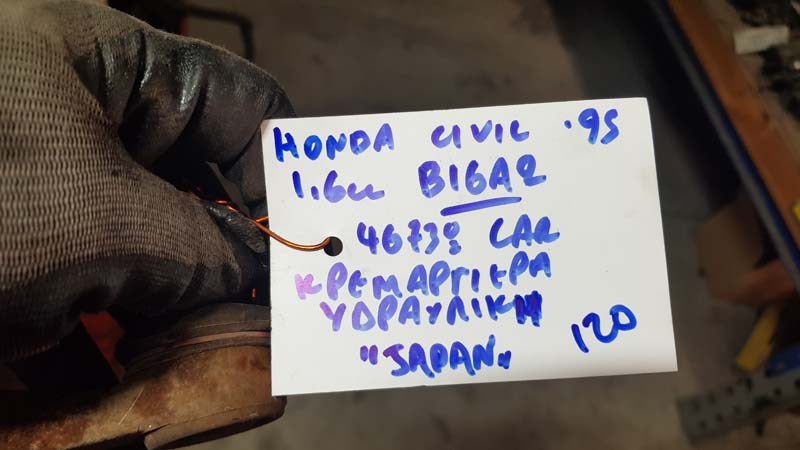 HONDA CIVIC '95
1.6cc B16A2
4673º CAR
ΚΡΕΜΑΡΓΙΕΡΑ
ΥΔΡΑΥΛΙΚΗ
"JAPAN" 120